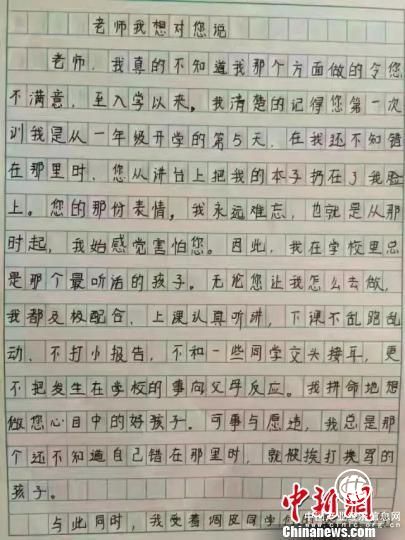 老师我想对您说
老师，我真的不知道我那个方面做的令您
不满意，至入学以来。我清楚的记得您第一次
训我是从一年级开学的第5天，在我还不知错
在那里时，您从讲台上把我的本子扔在了我脸
上。您的那份表情，我永远难忘，也就是从那
时起，我始感觉害怕您。因此，我在学校里总
是那个最听话的孩子。无论您让我怎么去做，
我都及极配合，上课认真听讲，下课不乱跑乱
动，不打小报告，不和一些同学交头接耳，更
不把发生在学校的事向父母反应。我拼命地想
做您心目中的好孩子。可事与愿违，我总是那
个还不知道自己错在那里时，就被挨打挨骂的
孩子。
与此同时，我受着调皮同学
中新网